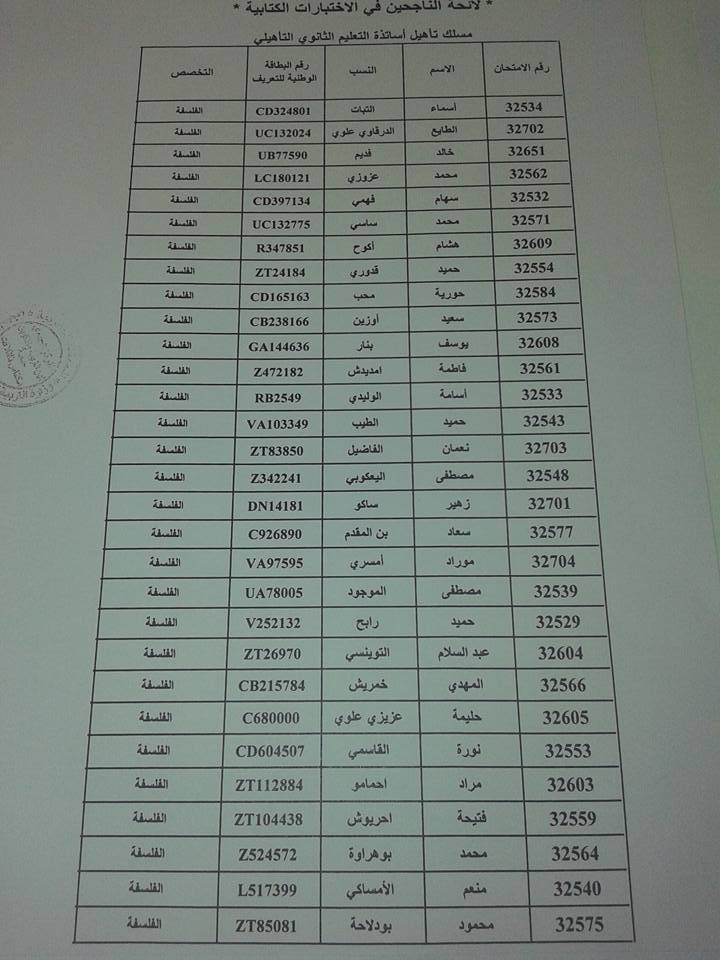 * لائحة الناجحين في الاختبارات الكتابية *
مسلك تأهيل أساتذة التعليم الثانوي التأهيلي
رقم الامتحان الاسم النسب رقم البطاقة الوطنية للتعريف التخصص
32534 أسماء التبات CD324801 الفلسفة
32702 الطايع الدرقاوي علوي UC132024 الفلسفة
32651 خالد فديم UB77590 الفلسفة
32562 محمد عزوزي LC180121 الفلسفة
32532 سهام فهمي CD397134 الفلسفة
32571 محمد ساسي UC132775 الفلسفة
32609 هشام أكوح R347851 الفلسفة
32554 حميد قدوري ZT24184 الفلسفة
32584 حورية محب CD165163 الفلسفة
32573 سعيد أوزين CB238166 الفلسفة
32608 يوسف بنار GA144636 الفلسفة
32561 فاطمة امديدش Z472182 الفلسفة
32533 أسامة الوليدي RB2549 الفلسفة
32543 حميد الطيب VA103349 الفلسفة
32703 نعمان الفاضيل ZT83850 الفلسفة
32548 مصطفى اليعكوبي Z342241 الفلسفة
32701 زهير ساكو DN14181 الفلسفة
32577 سعاد بن المقدم C926890 الفلسفة
32704 موراد أمسري VA97595 الفلسفة
32539 مصطفى الموجود UA78005 الفلسفة
32529 حميد رابح V252132 الفلسفة
32604 عبد السلام التوينسي ZT26970 الفلسفة
32566 المهدي خمريش CB215784 الفلسفة
32605 حليمة عزيزي علوي C680000 الفلسفة
32553 نورة القاسمي CD604507 الفلسفة
32603 مراد احمامو ZT112884 الفلسفة
32559 فتيحة احريوش ZT104438 الفلسفة
32564 محمد بوهراوة Z524572 الفلسفة
32540 منعم الأمساكي L517399 الفلسفة
32575 محمود بودلاحة ZT85081 الفلسفة